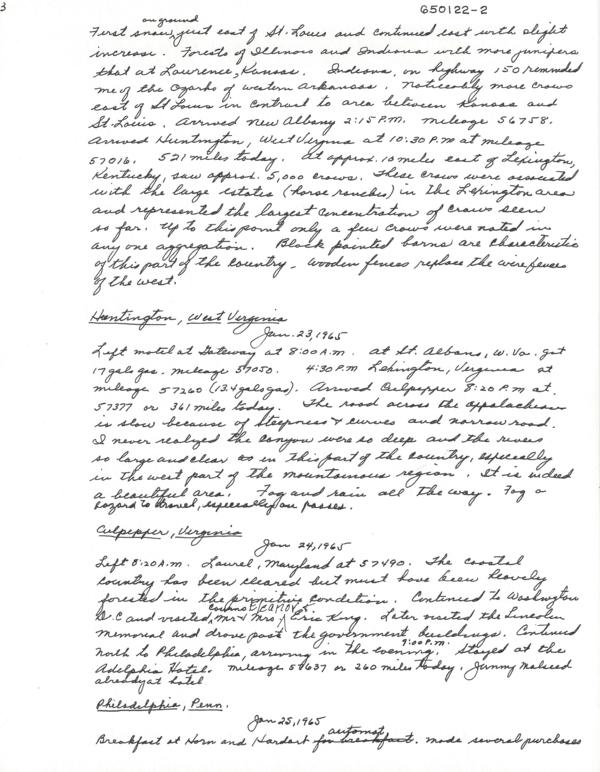 3
650122-2
on ground
First snow, just east of St. Louis and continued east with slight
increase. Forests of Illinois and Indiana with more junipers
that at Lawrence, Kansas. Indiana, on highway 150 reminded
me of the Ozarks of western Arkansas. Noticeably more crows
east of St Louis in contrast to area between Kansas and
St. Louis. Arrived New Albany 2:15 P.M. mileage 56758.
Arrived Huntington, West Virginia at 10:30 P.M at mileage
57016. 521 miles today. At approx. 10 miles east of Lexington,
Kentucky, saw approx. 5,000 crows. These crows were associated
with the large estates (horse ranches) in the Lexington area
and represented the largest concentration of crows seen
so far. Up to this point only a few crows were noted in
any one aggregation. Black painted barns are characteristic
of this part of the country - wooden fences replace the wire fences
of the west.
Huntington, West Virginia
Jan. 23, 1965
Left motel at Gateway at 8:00 A.M. at St. Albans, W. Va. got
17 gals gas. mileage 57050. 4:30 P.M Lexington, Virginia at
mileage 57260 (13.4 gals gas). Arrived Culpepper 8:20 P.M at
57377 or 361 miles today. The road across the Appalachean
is slow because of steepness & curves and narrow road.
I never realized the canyons were so deep and the rivers
so large and clear as in this part of the country, especially
in the west part of the mountainous region. It is indeed
a beautiful area. Fog and rain all the way. Fog a
hazard to travel, especially on passes.
Culpepper, Virginia
Jan 24, 1965
Left 8:20 A.M. Laurel, Maryland at 57490. The coastal
country has been cleared but must have been heavily
forested in the primitive condition. Continued to Washington
D.C and visited, Mr & Mrs Eric King. Later visited the Lincoln
Memorial and drove past the government buildings. Continued
9:00 P.M.
north to Philadelphia, arriving in the evening. Stayed at the
Adelphia Hotel. Mileage 57637 or 260 miles today. Jimmy
already at hotel
Philadelphia, Penn.
Jan 25, 1965
automat
Breakfast at Horn and Hardart for breakfast. made several purchases